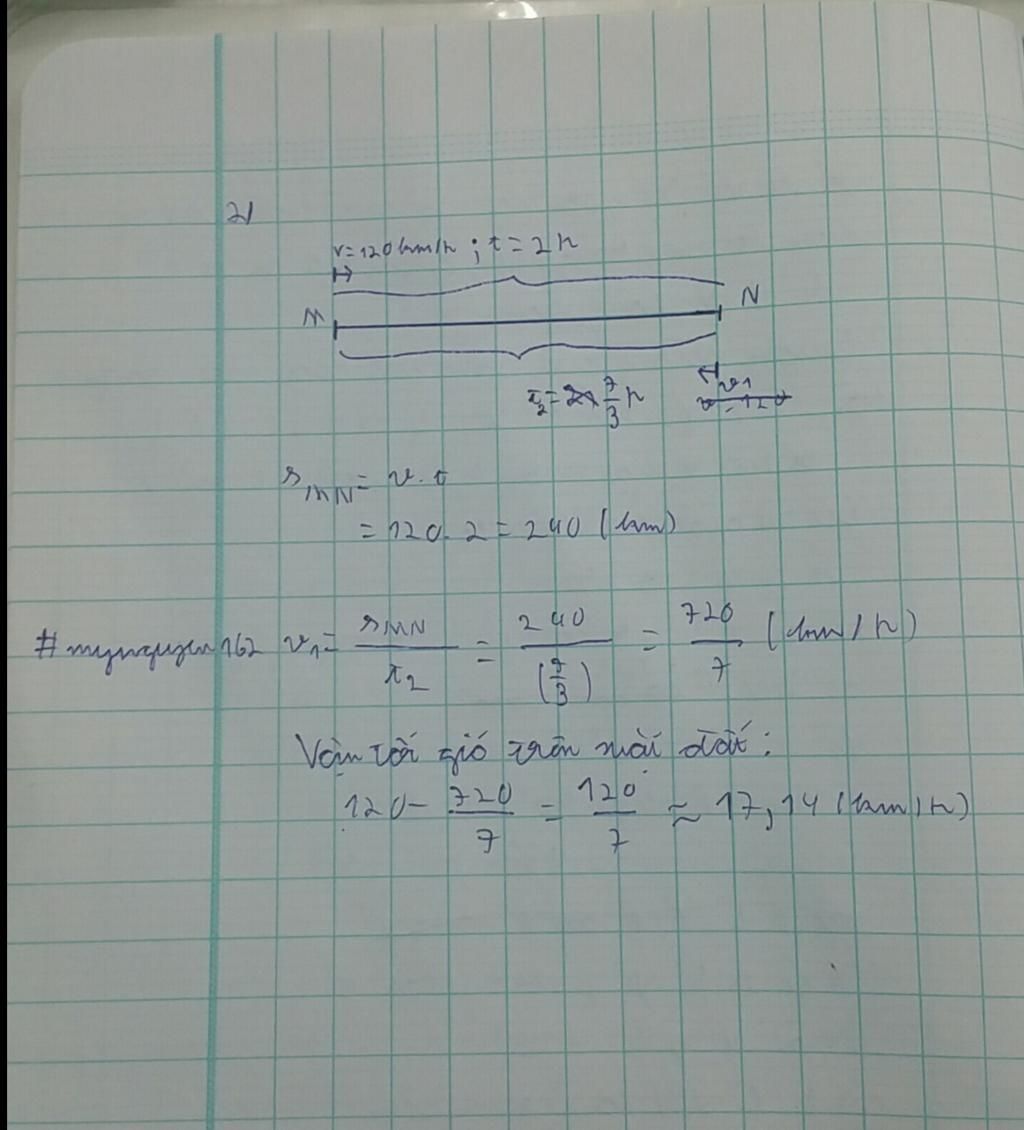 2/
v=120km/h ; t = 2h
M N
t₂= 2h 7/3 h v1
v=120
s_MN = v.t
= 120. 2 = 240 (km)
#mynguyen162 v₁= s_MN/t₂ = 240/(7/3) = 720/7 (km/h)
Vận tốc gió trên mặt đất :
120 - 720/7 = 120/7 ≈ 17,14 (km/h)